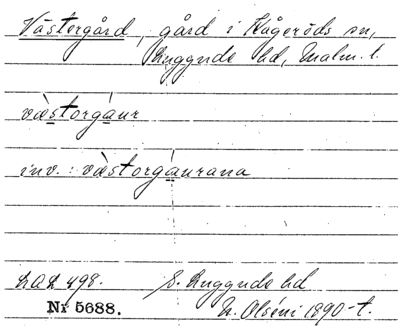 Västergård, gård i Kågeröds sn,
Luggude hd, Malm. l.
væ̀storgáur
inv.: væ̀storgáurana
LAL 498. S. Luggude hd
Nr 5688. N. Olséni 1890-t.